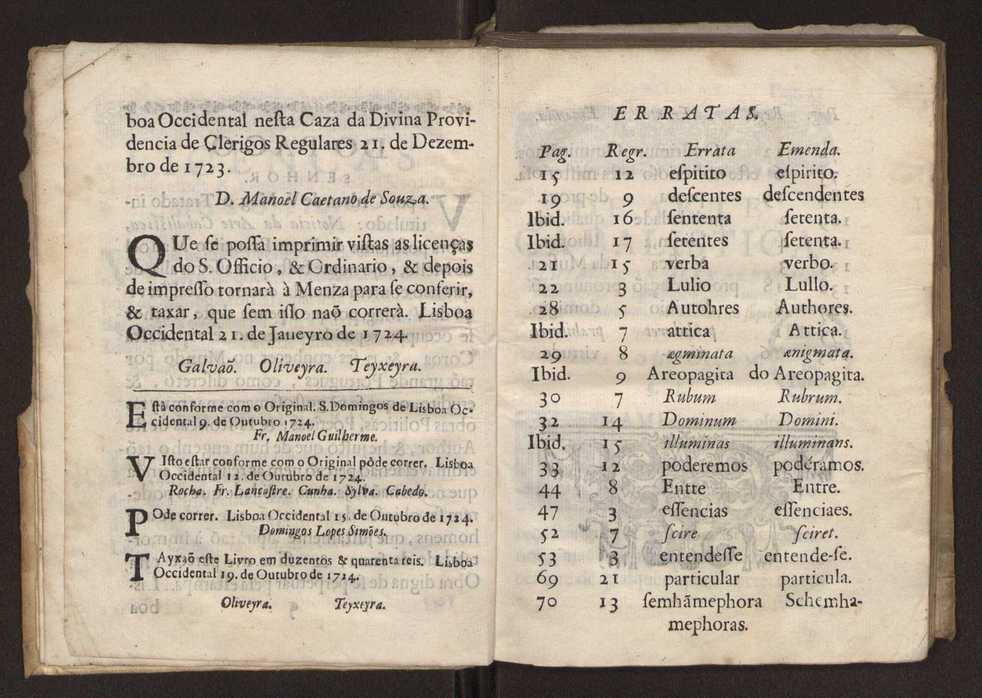 boa Occidental neſta Caza da Divina Provi-
dencia de Clerigos Regulares 21. de Dezem-
bro de 1723.
D. Manoel Caetano de Souza.
QUe ſe poſſa imprimir viſtas as licenças
do S. Officio, & Ordinario, & depois
de impreſſo tornarà à Menza para ſe conferir,
& taxar, que ſem iſſo naõ correrà. Lisboa
Occidental 21. de Janeyro de 1724.
Galvaõ. Oliveyra. Teyxeyra.
Eſtà conforme com o Original. S. Domingos de Lisboa Oc-
cidental 9. de Outubro 1724.
Fr. Manoel Guilherme.
VIſto eſtar conforme com o Original pòde correr. Lisboa
Occidental 12. de Outubro de 1724.
Rocha. Fr. Lancaſtre. Cunha. Sylva. Cabedo.
POde correr. Lisboa Occidental 15. de Outubro de 1724.
Domingos Lopes Simões.
TAyxaõ eſte Livro em duzentos & quarenta reis. Lisboa
Occidental 19. de Outubro de 1724.
Oliveyra. Teyxeyra.
ERRATAS.
Pag. Regr. Errata Emenda.
15 12 eſpitito eſpirito.
19 9 deſcentes deſcendentes
Ibid. 16 ſententa ſetenta.
Ibid. 17 ſetentes ſetenta.
21 15 verba verbo.
22 3 Lulio Lullo.
28 5 Autohres Authores.
Ibid. 7 attica Attica.
29 8 ægminata ænigmata.
Ibid. 9 Areopagita do Areopagita.
30 7 Rubum Rubrum.
32 14 Dominum Domini.
Ibid. 15 illuminas illuminans.
33 12 poderemos podéramos.
44 8 Entte Entre.
47 3 eſſencias eſſenciaes.
52 7 ſcire ſciret.
53 3 entendeſſe entende-ſe.
69 21 particular particula.
70 13 ſemhãmephora Schemha-
mephoras.